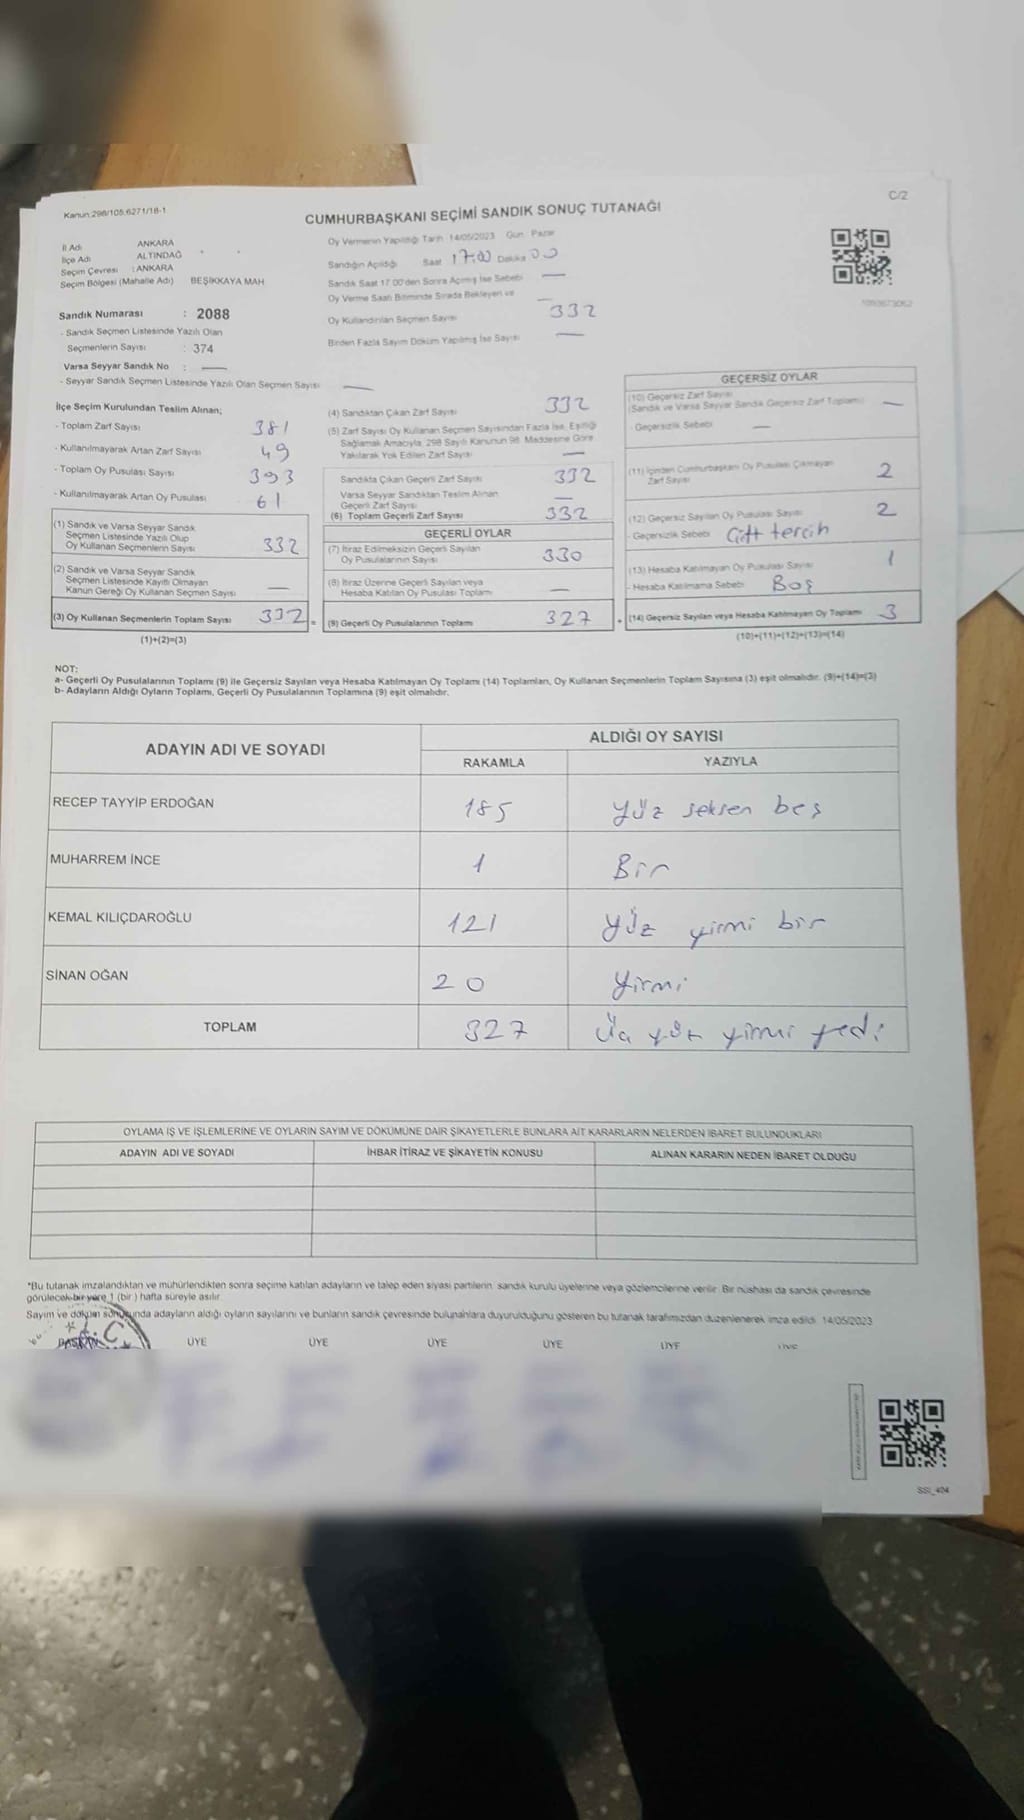 Kanun:298/105:6271/18-1
C/2
CUMHURBAŞKANI SEÇİMİ SANDIK SONUÇ TUTANAĞI
İl Adı ANKARA
İlçe Adı ALTINDAĞ
Seçim Çevresi : ANKARA
Seçim Bölgesi (Mahalle Adı) BEŞİKKAYA MAH
Oy Vermenin Yapıldığı Tarih 14/05/2023 Gün Pazar
Sandığın Açıldığı Saat 17:00 Dakika 00
Sandık Saat 17.00'den Sonra Açılmış İse Sebebi —
Oy Verme Saati Bitiminde Sırada Bekleyen ve —
Oy Kullandırılan Seçmen Sayısı 332
Birden Fazla Sayım Döküm Yapılmış İse Sayısı —
Sandık Numarası : 2088
- Sandık Seçmen Listesinde Yazılı Olan
Seçmenlerin Sayısı : 374
Varsa Seyyar Sandık No : —
- Seyyar Sandık Seçmen Listesinde Yazılı Olan Seçmen Sayısı —
İlçe Seçim Kurulundan Teslim Alınan;
- Toplam Zarf Sayısı 381
- Kullanılmayarak Artan Zarf Sayısı 49
- Toplam Oy Pusulası Sayısı 393
- Kullanılmayarak Artan Oy Pusulası 61
(1) Sandık ve Varsa Seyyar Sandık
Seçmen Listesinde Yazılı Olup
Oy Kullanan Seçmenlerin Sayısı 332
(2) Sandık ve Varsa Seyyar Sandık
Seçmen Listesinde Kayıtlı Olmayan
Kanun Gereği Oy Kullanan Seçmen Sayısı —
(3) Oy Kullanan Seçmenlerin Toplam Sayısı 332 =
(1)+(2)=(3)
(4) Sandıktan Çıkan Zarf Sayısı 332
(5) Zarf Sayısı Oy Kullanan Seçmen Sayısından Fazla İse, Eşitliği
Sağlamak Amacıyla, 298 Sayılı Kanunun 98. Maddesine Göre
Yakılarak Yok Edilen Zarf Sayısı —
Sandıkta Çıkan Geçerli Zarf Sayısı 332
Varsa Seyyar Sandıktan Teslim Alınan
Geçerli Zarf Sayısı —
(6) Toplam Geçerli Zarf Sayısı 332
GEÇERLİ OYLAR
(7) İtiraz Edilmeksizin Geçerli Sayılan
Oy Pusulalarının Sayısı 330
(8) İtiraz Üzerine Geçerli Sayılan veya
Hesaba Katılan Oy Pusulası Toplamı —
(9) Geçerli Oy Pusulalarının Toplamı 327 +
GEÇERSİZ OYLAR
(10) Geçersiz Zarf Sayısı
(Sandık ve Varsa Seyyar Sandık Geçersiz Zarf Toplamı) —
- Geçersizlik Sebebi —
(11) İçinden Cumhurbaşkanı Oy Pusulası Çıkmayan
Zarf Sayısı 2
(12) Geçersiz Sayılan Oy Pusulası Sayısı 2
- Geçersizlik Sebebi Çift tercih
(13) Hesaba Katılmayan Oy Pusulası Sayısı 1
- Hesaba Katılmama Sebebi Boş
(14) Geçersiz Sayılan veya Hesaba Katılmayan Oy Toplamı 3
(10)+(11)+(12)+(13)=(14)
NOT:
a- Geçerli Oy Pusulalarının Toplamı (9) ile Geçersiz Sayılan veya Hesaba Katılmayan Oy Toplamı (14) Toplamları, Oy Kullanan Seçmenlerin Toplam Sayısına (3) eşit olmalıdır. (9)+(14)=(3)
b- Adayların Aldığı Oyların Toplamı, Geçerli Oy Pusulalarının Toplamına (9) eşit olmalıdır.
ADAYIN ADI VE SOYADI
ALDIĞI OY SAYISI
RAKAMLA YAZIYLA
RECEP TAYYİP ERDOĞAN 185 yüz seksen beş
MUHARREM İNCE 1 Bir
KEMAL KILIÇDAROĞLU 121 yüz yirmi bir
SİNAN OĞAN 20 yirmi
TOPLAM 327 Üç yüz yirmi yedi
OYLAMA İŞ VE İŞLEMLERİNE VE OYLARIN SAYIM VE DÖKÜMÜNE DAİR ŞİKAYETLERLE BUNLARA AİT KARARLARIN NELERDEN İBARET BULUNDUKLARI
ADAYIN ADI VE SOYADI İHBAR İTİRAZ VE ŞİKAYETİN KONUSU ALINAN KARARIN NEDEN İBARET OLDUĞU
*Bu tutanak imzalandıktan ve mühürlendikten sonra seçime katılan adayların ve talep eden siyasi partilerin sandık kurulu üyelerine veya gözlemcilerine verilir. Bir nüshası da sandık çevresinde
görülecek bir yere 1 (bir ) hafta süreyle asılır.
Sayım ve döküm sonucunda adayların aldığı oyların sayılarını ve bunların sandık çevresinde bulunanlara duyurulduğunu gösteren bu tutanak tarafımızdan düzenlenerek imza edildi. 14/05/2023
BAŞKAN ÜYE ÜYE ÜYE ÜYE ÜYE ÜYE
SSI_404